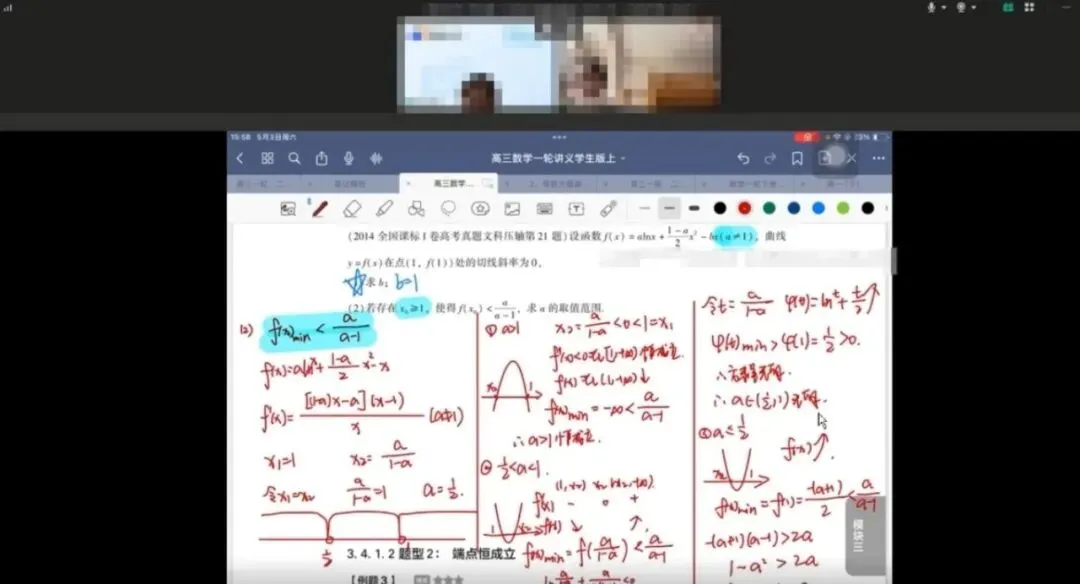 15:58 5月3日周六
高三数学一轮讲义学生版上
高三数学...
(2014 全国课标 I 卷高考真题文科压轴第 21 题) 设函数 f(x) = alnx + \frac{1-a}{2}x² - bx(a≠1), 曲线
y=f(x) 在点(1, f(1))处的切线斜率为 0,
求 b; b=1
(2)若存在 x₀≥1, 使得 f(x₀) < \frac{a}{a-1}, 求 a 的取值范围.
(2) f(x)min < \frac{a}{a-1}
f(x)=alnx+\frac{1-a}{2}x²-x
f'(x)=\frac{[(1-a)x-a](x-1)}{x} (a≠1)
x₁=1 x₂=\frac{a}{1-a}
令x₁=x₂ \frac{a}{1-a}=1 a=\frac{1}{2}.
\frac{1}{2} 1
① a>1 x₂=\frac{a}{1-a}<0<1=x₁
f'(x)<0在[1,+∞)恒成立.
x₂ 1
f(x)在(1,+∞)↓
f(x)min=-∞<\frac{a}{a-1}
∴a>1恒成立.
② \frac{1}{2}<a<1.
(1,x₂) x₂ (x₂,+∞)
f'(x) - 0 +
1 x₂ f(x) ↓ ↑
f(x)min=f(\frac{a}{1-a})<\frac{a}{a-1}
令t=\frac{a}{1-a} φ(t)=lnt+\frac{t}{2}↗
φ(t)min>φ(1)=\frac{1}{2}>0.
∴a∈(\frac{1}{2},1)无解.
③ a≤\frac{1}{2}
x₂ 1 f(x)↗.
f(x)min=f(1)=\frac{-(a+1)}{2}<\frac{a}{a-1}
-(a+1)(a-1)>2a
1-a²>2a
3.4.1.2 题型 2: 端点恒成立
【例题 3】
模块三